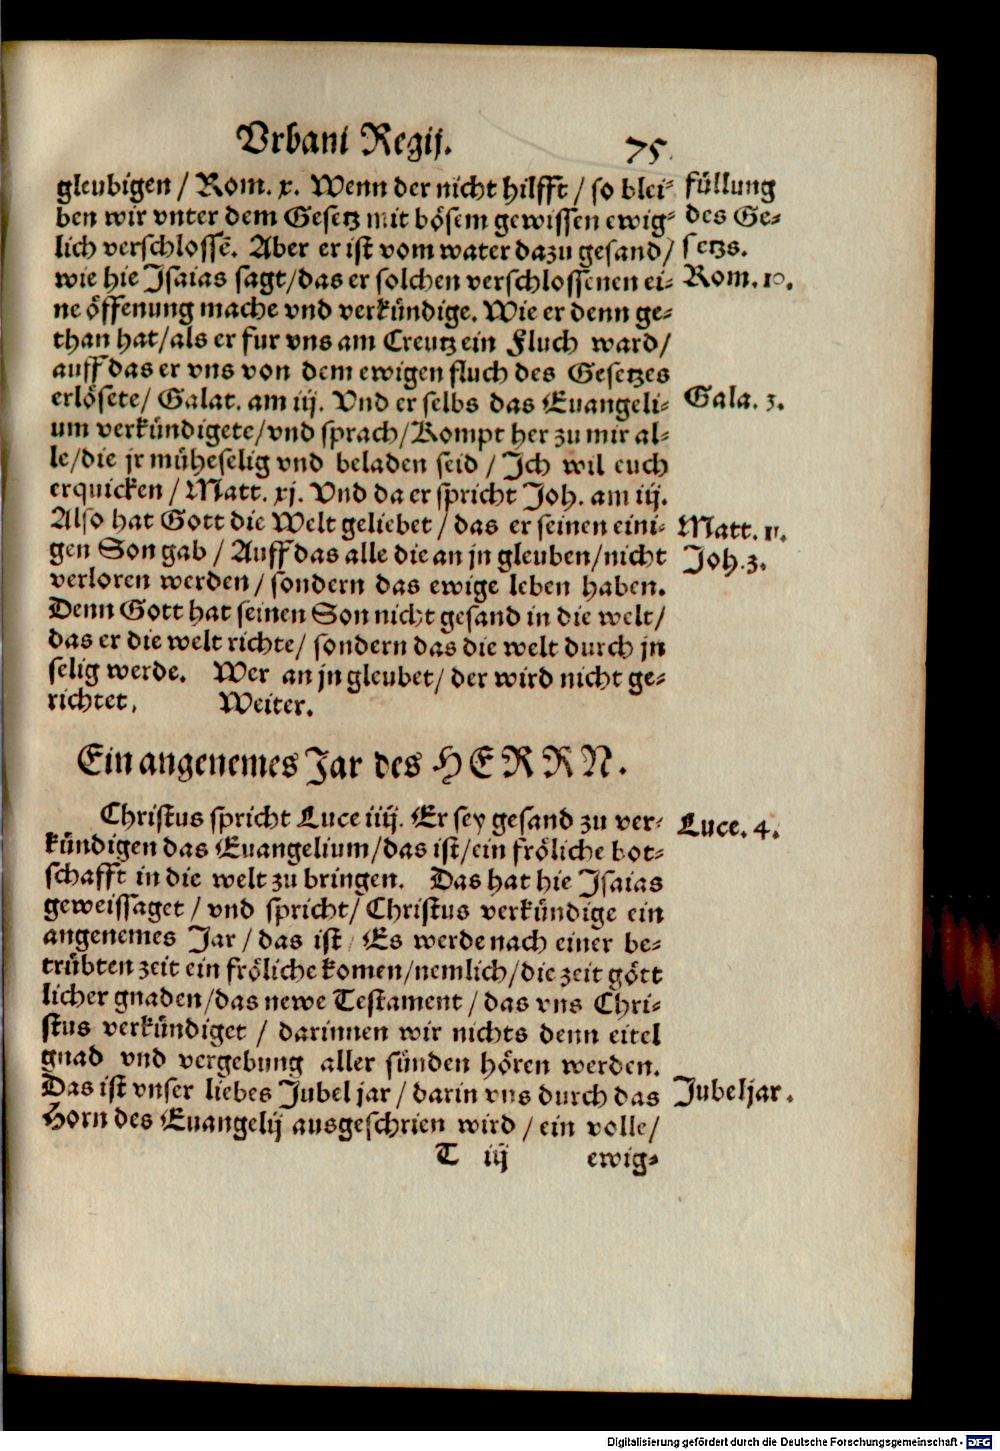 Vrbani Regij.
75.
gleubigen / Rom. x. Wenn der nicht hilfft / so blei-
ben wir vnter dem Gesetz mit bösem gewissen ewig-
lich verschlossē. Aber er ist vom vater dazu gesand /
wie hie Jsaias sagt / das er solchen verschlossenen ei-
ne öffenung mache vnd verkündige. Wie er denn ge-
than hat / als er fur vns am Creutz ein Fluch ward /
auff das er vns von dem ewigen fluch des Gesetzes
erlösete / Galat. am iij. Vnd er selbs das Euangeli-
um verkündigete / vnd sprach / Kompt her zu mir al-
le / die jr müheselig vnd beladen seid / Jch wil euch
erquicken / Matt. xj. Vnd da er spricht Joh. am iij.
Also hat Gott die Welt geliebet / das er seinen eini-
gen Son gab / Auff das alle die an jn gleuben / nicht
verloren werden / sondern das ewige leben haben.
Denn Gott hat seinen Son nicht gesand in die welt /
das er die welt richte / sondern das die welt durch jn
selig werde. Wer an jn gleubet / der wird nicht ge-
richtet, Weiter.
füllung
des Ge-
setzs.
Rom. 10.
Gala. 3.
Matt. 11.
Joh. 3.
Ein angenemes Jar des HERRN.
Christus spricht Luce iiij. Er sey gesand zu ver-
kündigen das Euangelium / das ist / ein fröliche bot-
schafft in die welt zu bringen. Das hat hie Jsaias
geweissaget / vnd spricht / Christus verkündige ein
angenemes Jar / das ist / Es werde nach einer be-
trübten zeit ein fröliche komen / nemlich / die zeit gött
licher gnaden / das newe Testament / das vns Chri-
stus verkündiget / darinnen wir nichts denn eitel
gnad vnd vergebung aller sünden hören werden.
Das ist vnser liebes Jubel jar / darin vns durch das
Horn des Euangelij ausgeschrien wird / ein volle /
Luce. 4.
Jubeljar.
T iij
ewig-
Digitalisierung gefördert durch die Deutsche Forschungsgemeinschaft - DFG